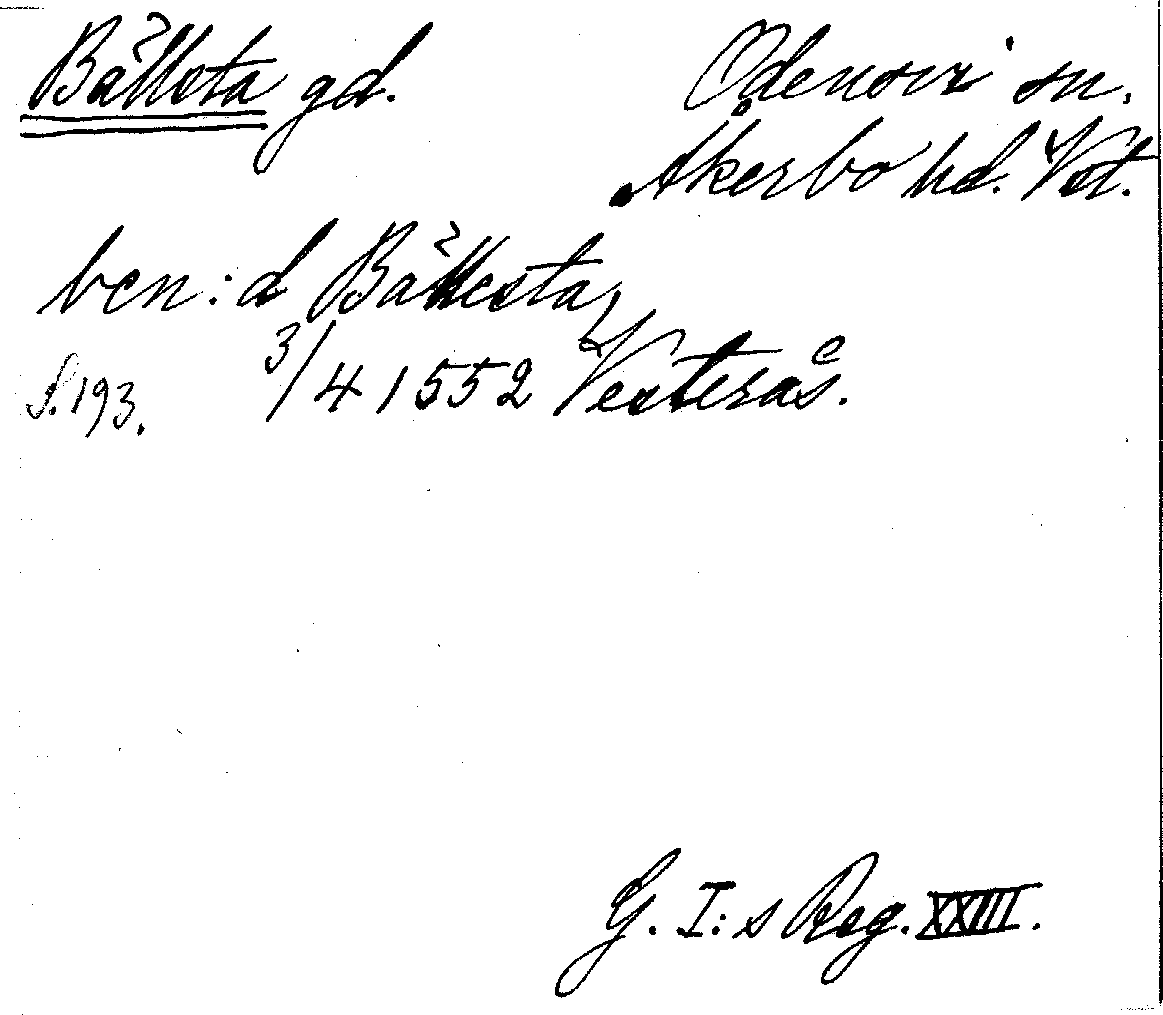 Bällsta gd. Odensvi sn.
Åkerbo hd. Vst.
ben:d Bällesta,
S. 193. 3/4 1552 Vesterås.
G. I:s Reg. XXIII.